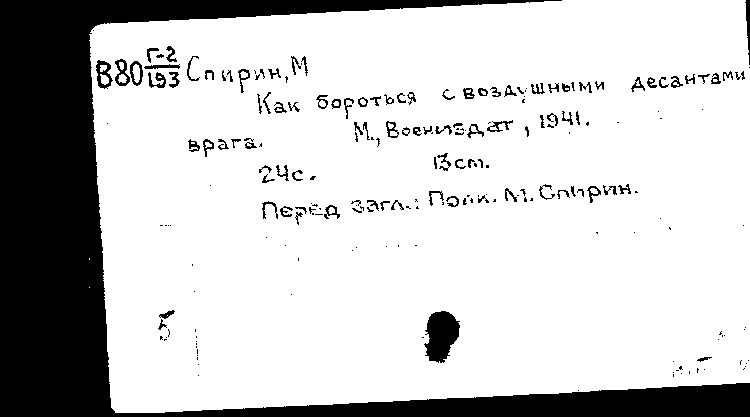 В80 Г-2/193 Спирин, М
Как бороться с воздушными десантами
врага. М., Воениздат, 1941.
24с. 13см.
Перед загл.: Полк. М. Спирин.
5